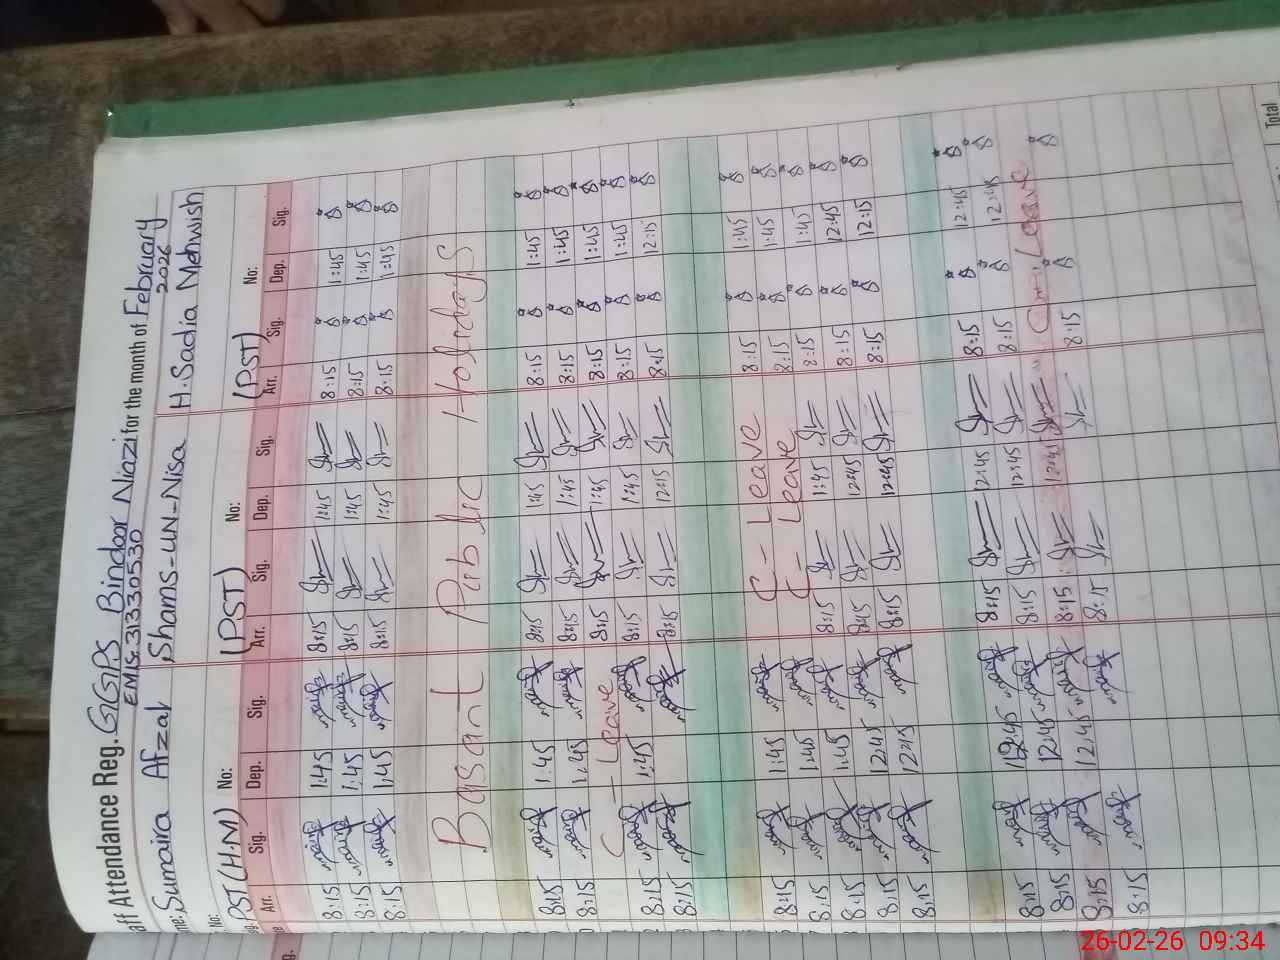 aff Attendance Reg. GGPS Bindoor Niazi for the month of February
EMIS: 31330530 2026
me: Sumaira Afzal Shams-UN-Nisa H. Sadia Mehwish
No: No: No:
PST (H.M) (PST) (PST)
Arr. Sig. Dep. Sig. Arr. Sig. Dep. Sig. Arr. Sig. Dep. Sig.
8:15 1:45 8:15 1:45 8:15 1:45
8:15 1:45 8:15 1:45 8:15 1:45
8:15 1:45 8:15 1:45 8:15 1:45
Basant Public Holidays
8:15 1:45 8:15 1:45 8:15 1:45
8:15 1:45 8:15 1:45 8:15 1:45
C - Leave 8:15 1:45 8:15 1:45
8:15 1:45 8:15 1:45 8:15 1:45
8:15 8:15 12:15 8:15 12:15
8:15 1:45 C - Leave 8:15 1:45
8:15 1:45 C - Leave 8:15 1:45
8:15 1:45 8:15 1:45 8:15 1:45
8:15 12:45 8:15 12:45 8:15 12:45
8:15 12:15 8:15 8:15 12:15
8:15 12:45 8:15 12:45 8:15 12:45
8:15 12:45 8:15 12:45 8:15 12:45
8:15 12:45 8:15 12:45 Leave
8:15 8:15 8:15
Total
26-02-26 09:34